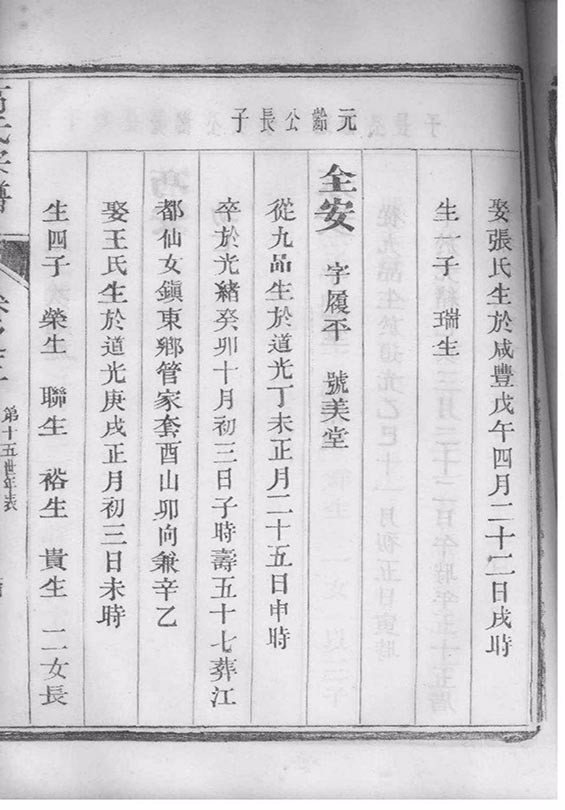 娶張氏生於咸豐戊午四月二十二日戌時
生一子 瑞生
元齡公長子
全安 字履平 號美堂
從九品生於道光丁未正月二十五日申時
卒於光緒癸卯十月初三日子時壽五十七葬江
都仙女鎭東鄉管家套酉山卯向兼辛乙
娶王氏生於道光庚戌正月初三日未時
生四子 榮生 聯生 裕生 貴生 二女長
氏宗譜
第十五世年表